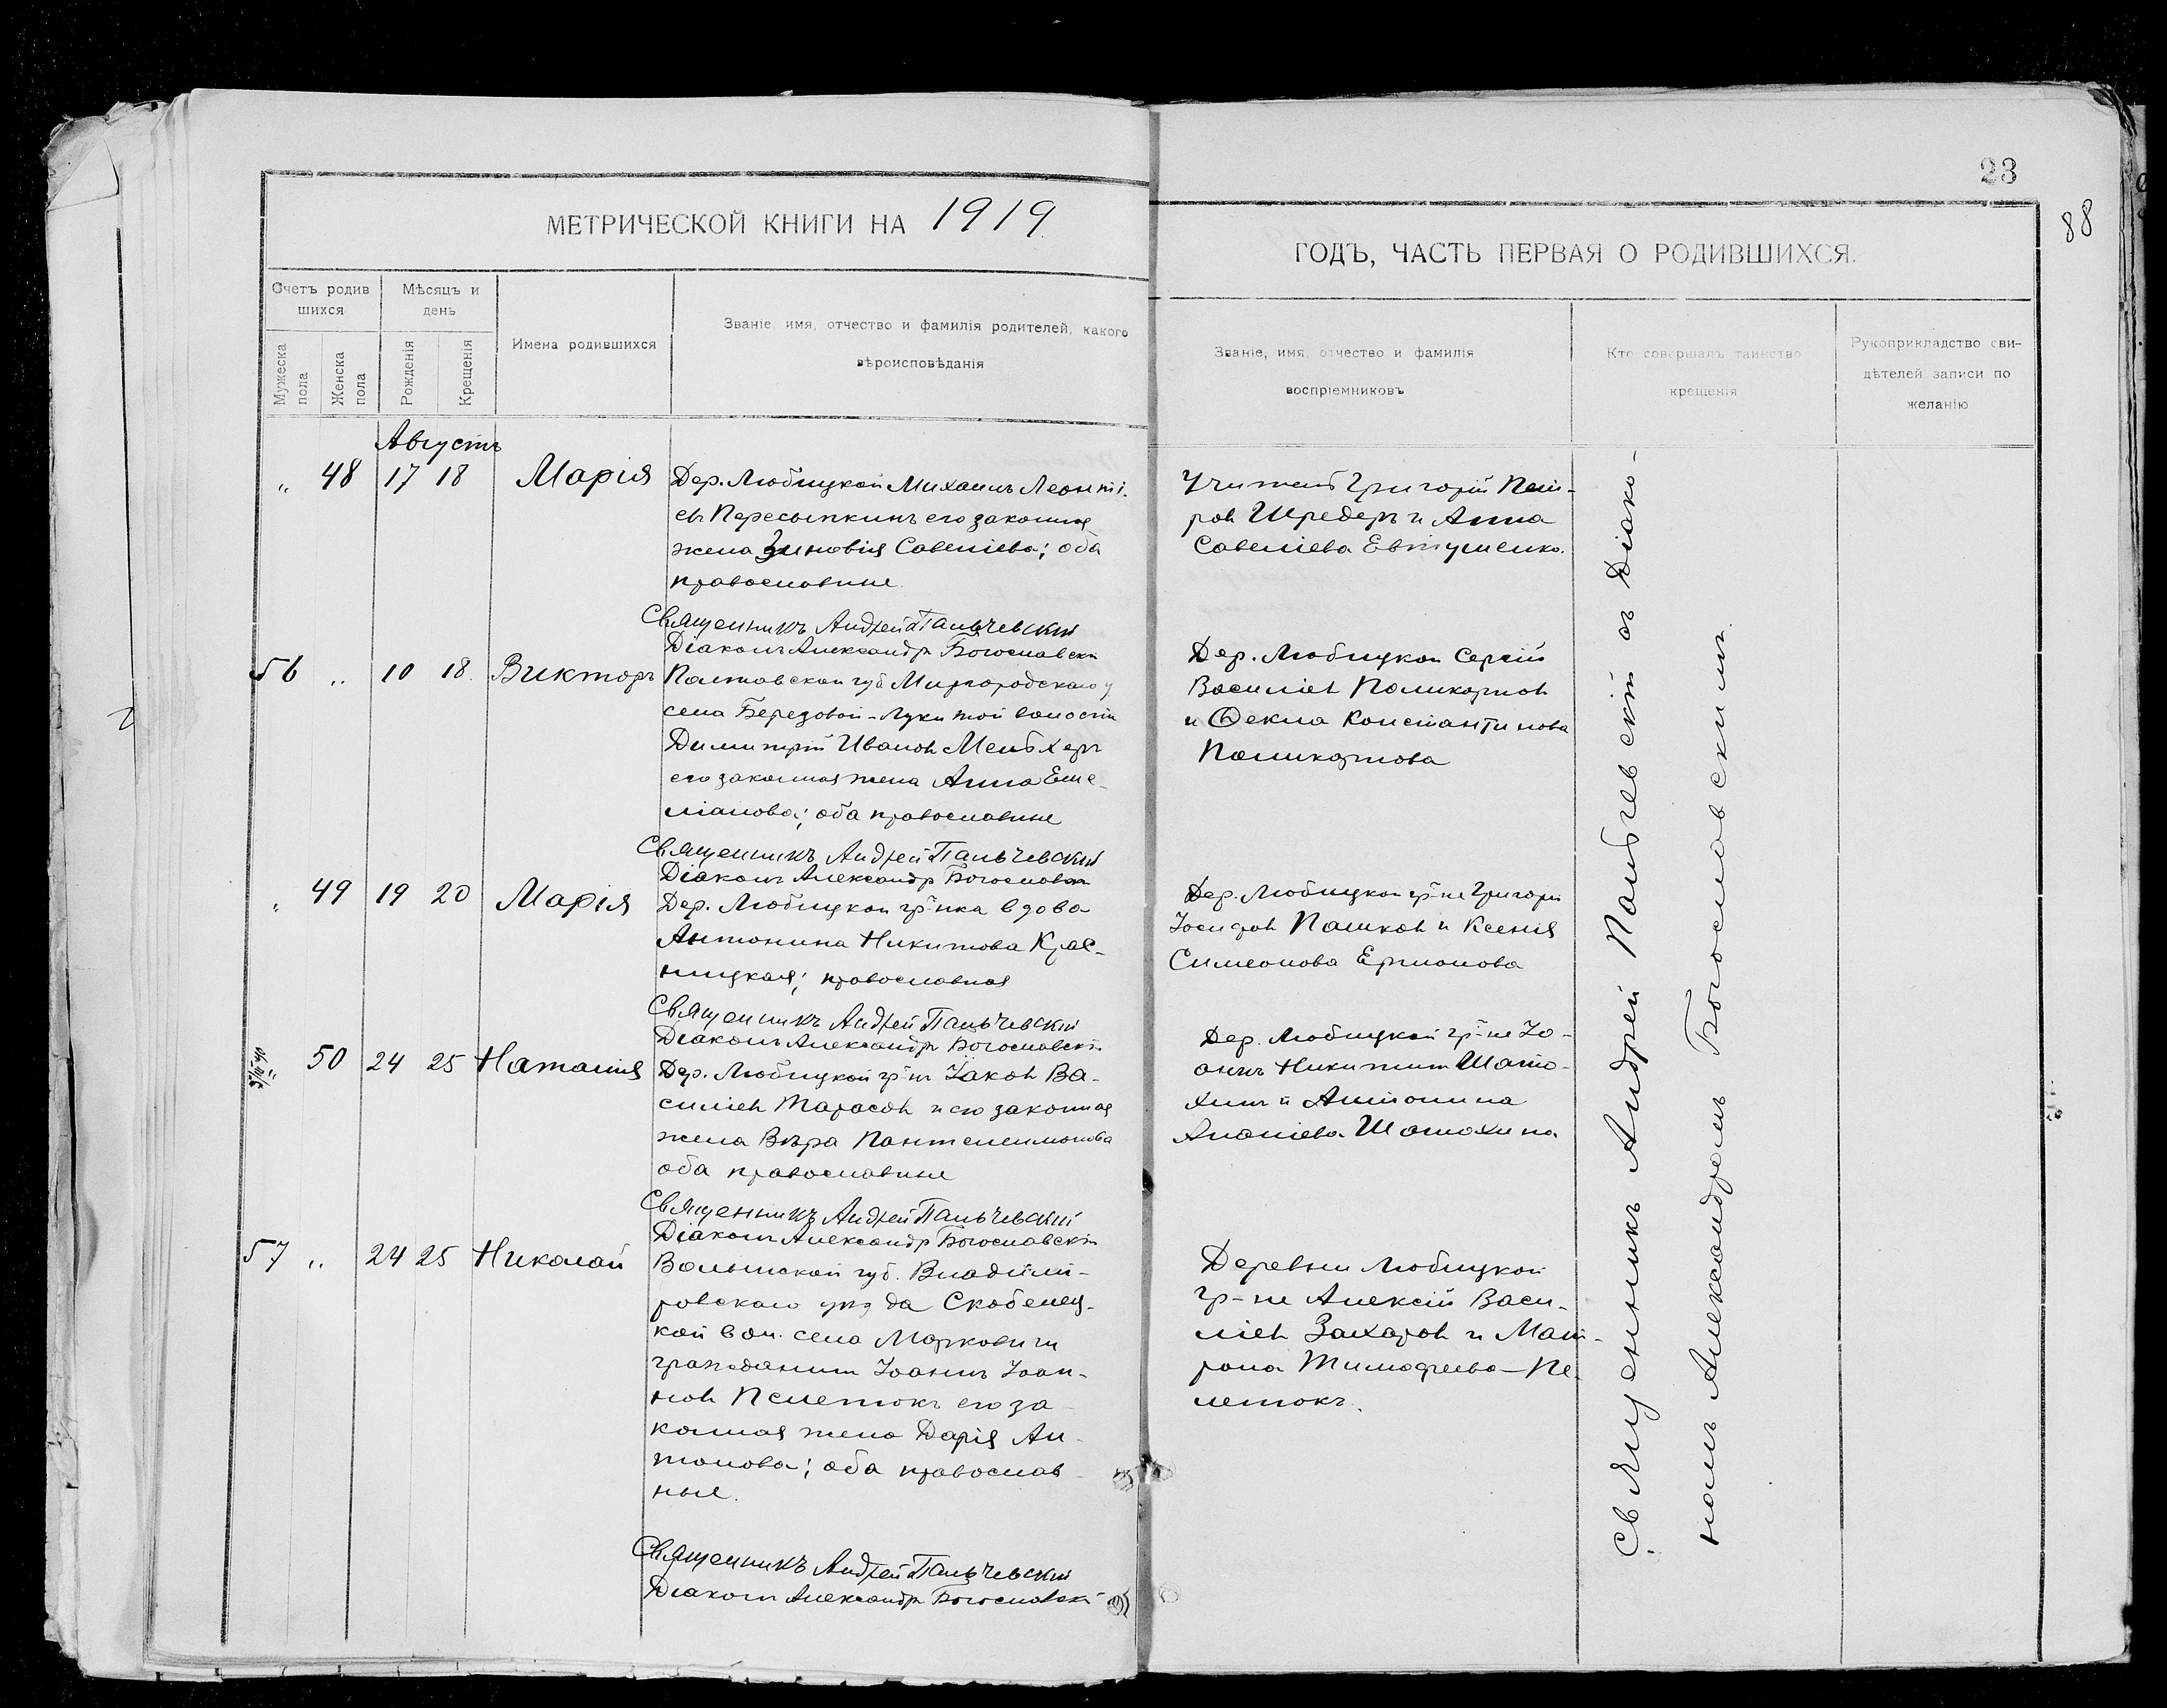 23
88
МЕТРИЧЕСКОЙ КНИГИ НА 1919
ГОДЪ, ЧАСТЬ ПЕРВАЯ О РОДИВШИХСЯ.
Счетъ родив
шихся
Мужеска
пола
Женска
пола
Мѣсяцъ и
день
Рожденія
Крещенія
Имена родившихся
Званіе, имя, отчество и фамилія родителей, какого
вѣроисповѣданія
Званіе, имя, отчество и фамилія
воспріемниковъ
Кто совершалъ таинство
крещенія
Рукоприкладство сви-
дѣтелей записи по
желанію
Августъ
" 48 17 18 Марія
Дер. Любицкой Михаилъ Леонті-
евъ Пересыпкинъ его законная
жена Зиновія Савеліева; оба
православные.
Священникъ Андрей Пальчевскій
Діаконъ Александръ Богословскій
Учитель Григорій Пет-
ровъ Шредеръ и Анна
Савеліева Евтушенко.
56 " 10 18 Викторъ
Полтавской губ Миргородскаго у
села Березовой-Луки той волости
Димитрій Ивановъ Мельхеръ
его законная жена Анна Еме-
ліанова; оба православные
Священникъ Андрей Пальчевскій
Діаконъ Александръ Богословскій
Дер. Любицкой Сергій
Василіевъ Поликарповъ
и Ѳекла Константинова
Поликарпова
" 49 19 20 Марія
Дер. Любицкой гр-нка вдова
Антонина Никитова Крас-
ницкая; православная
Священникъ Андрей Пальчевскій
Діаконъ Александръ Богословскій
Дер. Любицкой гр-не Григорій
Іосифовъ Пашковъ и Ксенія
Симеонова Ермакова
" 50 24 25 Наталія
Дер. Любицкой гр-нъ Іаковъ Ва-
силіевъ Тарасовъ и его законная
жена Вѣра Пантелеимонова
оба православные
Священникъ Андрей Пальчевскій
Діаконъ Александръ Богословскій
Дер. Любицкой гр-не Іо-
аннъ Никитинъ Шато-
хинъ и Антонина
Ананіева Шатохина
57 " 24 25 Николай
Волынской губ. Владимі-
ровскаго уѣзда Скобелец-
кой вол. села Марковичи
гражданинъ Іоаннъ Іоан-
новъ Пелетокъ его за-
конная жена Дарія Ан-
тонова; оба православ-
ные.
Священникъ Андрей Пальчевскій
Діаконъ Александръ Богословскій
Деревни Любицкой
гр-не Алексій Васи-
ліевъ Захаровъ и Мат-
рона Тимофеева-Пе-
летокъ.
Священникъ Андрей Пальчевскій съ Діако-
номъ Александромъ Богословскимъ.